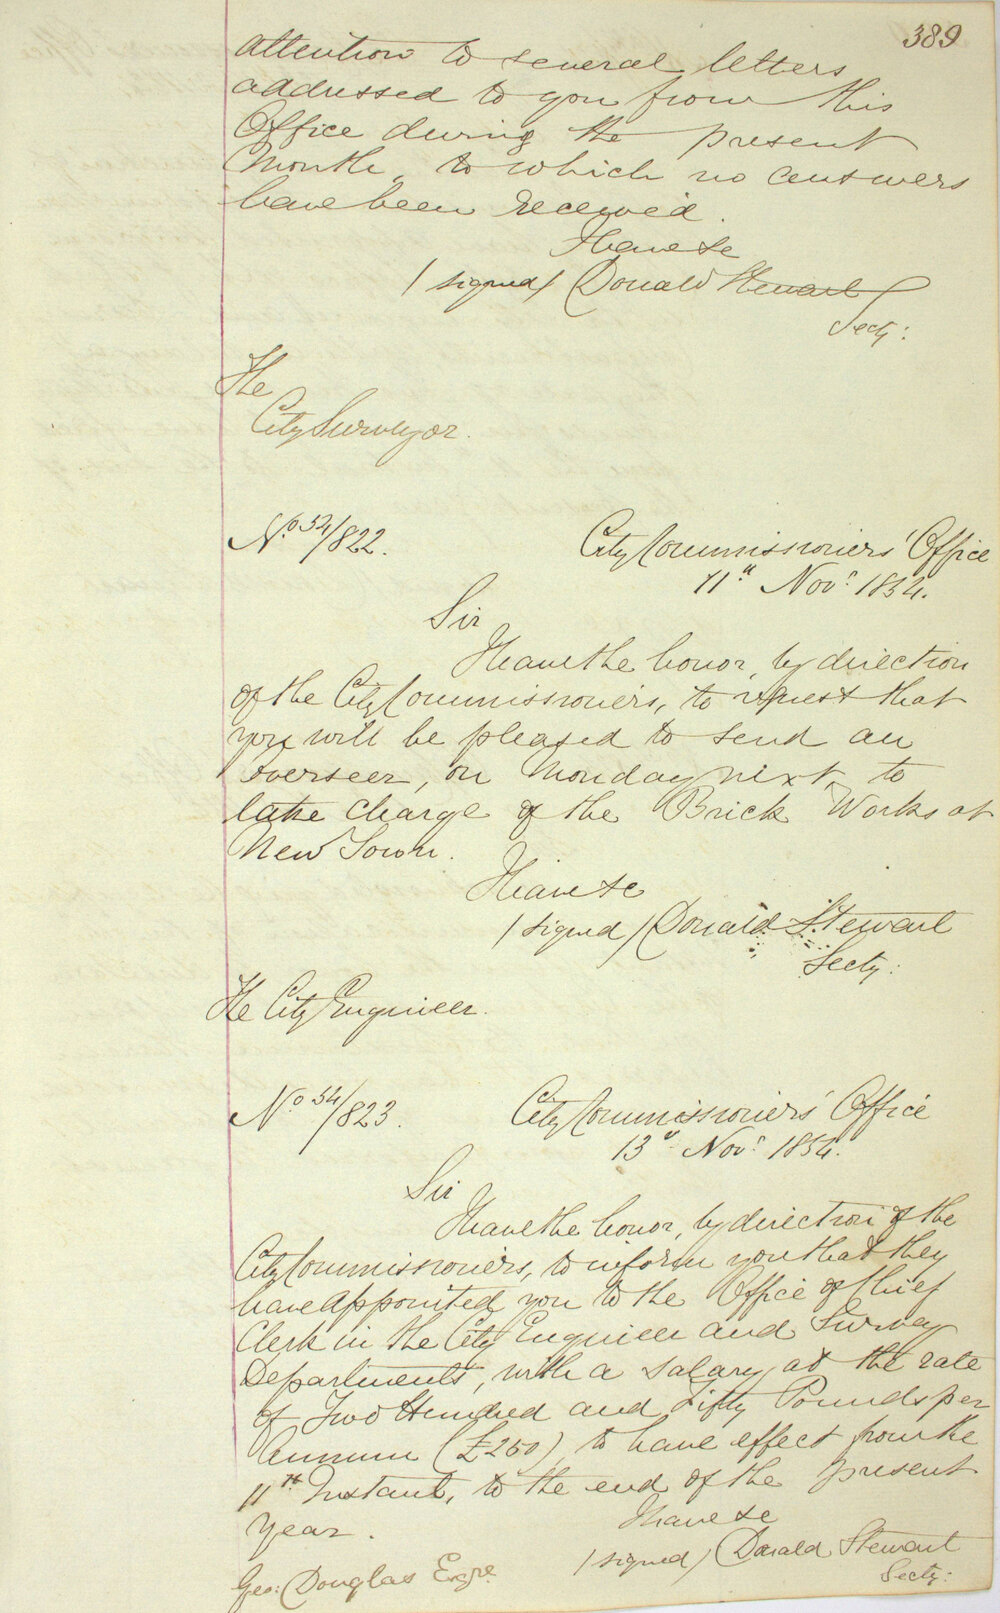 389
attention to several letters
addressed to you from this
Office during the present
Month, to which no answers
have been received.
I have &c
(signed) Donald Stewart
Secty:
The
City Surveyor.
No 54/822.
City Commissioners' Office
11th Novr 1854.
Sir
I have the honor, by direction
of the City Commissioners, to request that
you will be pleased to send an
overseer, on Monday next, to
take charge of the Brick Works at
New Town.
I have &c
(signed) Donald Stewart
Secty:
The City Engineer.
No 54/823.
City Commissioners' Office
13th Novr 1854.
Sir
I have the honor, by direction of the
City Commissioners, to inform you that they
have appointed you to the Office of Chief
Clerk in the City Engineer and Survey
Departments, with a salary at the rate
of Two Hundred and Fifty Pounds per
Annum (£250) to have effect from the
11th Instant, to the end of the present
year.
I have &c
(signed) Donald Stewart
Secty:
Geo: Douglas Esqre